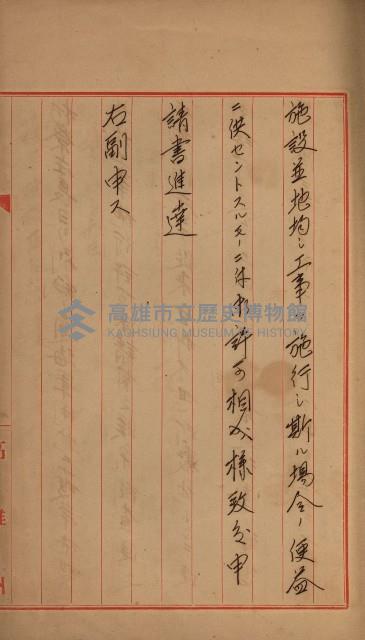 施設並地均シ工事ヲ施行シ斯ル場合ノ便益
ニ供セントスルモノニ付御許可相成様致度申
請書進達
右副申ス
高雄市立歷史博物館
KAOHSIUNG MUSEUM OF HISTORY
高雄州